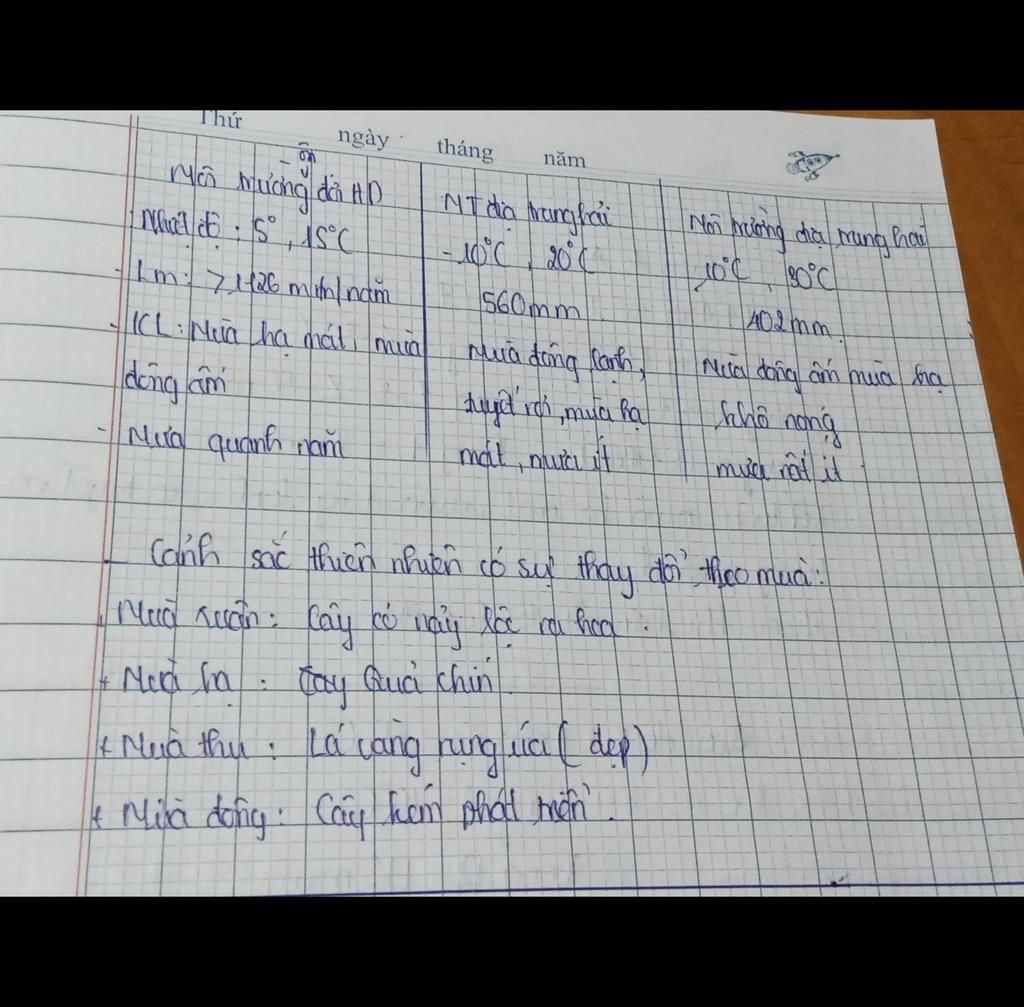 Thứ ngày tháng năm
Môi trường ôn đới HD
Nhiệt độ : 5°, 15°C
- Lm: > 1126 mm/năm
- KL: Mùa hạ mát, mùa
đông ấm
- Mưa quanh năm
MT địa trung hải
-10°C, 20°C
560mm
Mùa đông lạnh,
tuyết rơi, mùa hạ
mát, mưa ít
Môi trường địa trung hải
10°C, 30°C
402mm
Mùa đông ấm mùa hạ
khô nóng
mưa rất ít
- Cảnh sắc thiên nhiên có sự thay đổi theo mùa:
+ Mùa xuân: Cây cỏ nảy lộc ra hoa.
+ Mùa hạ : Cây Quả chín
+ Mùa thu : Lá vàng rụng úa ( đẹp)
+ Mùa đông : Cây kém phát triển.